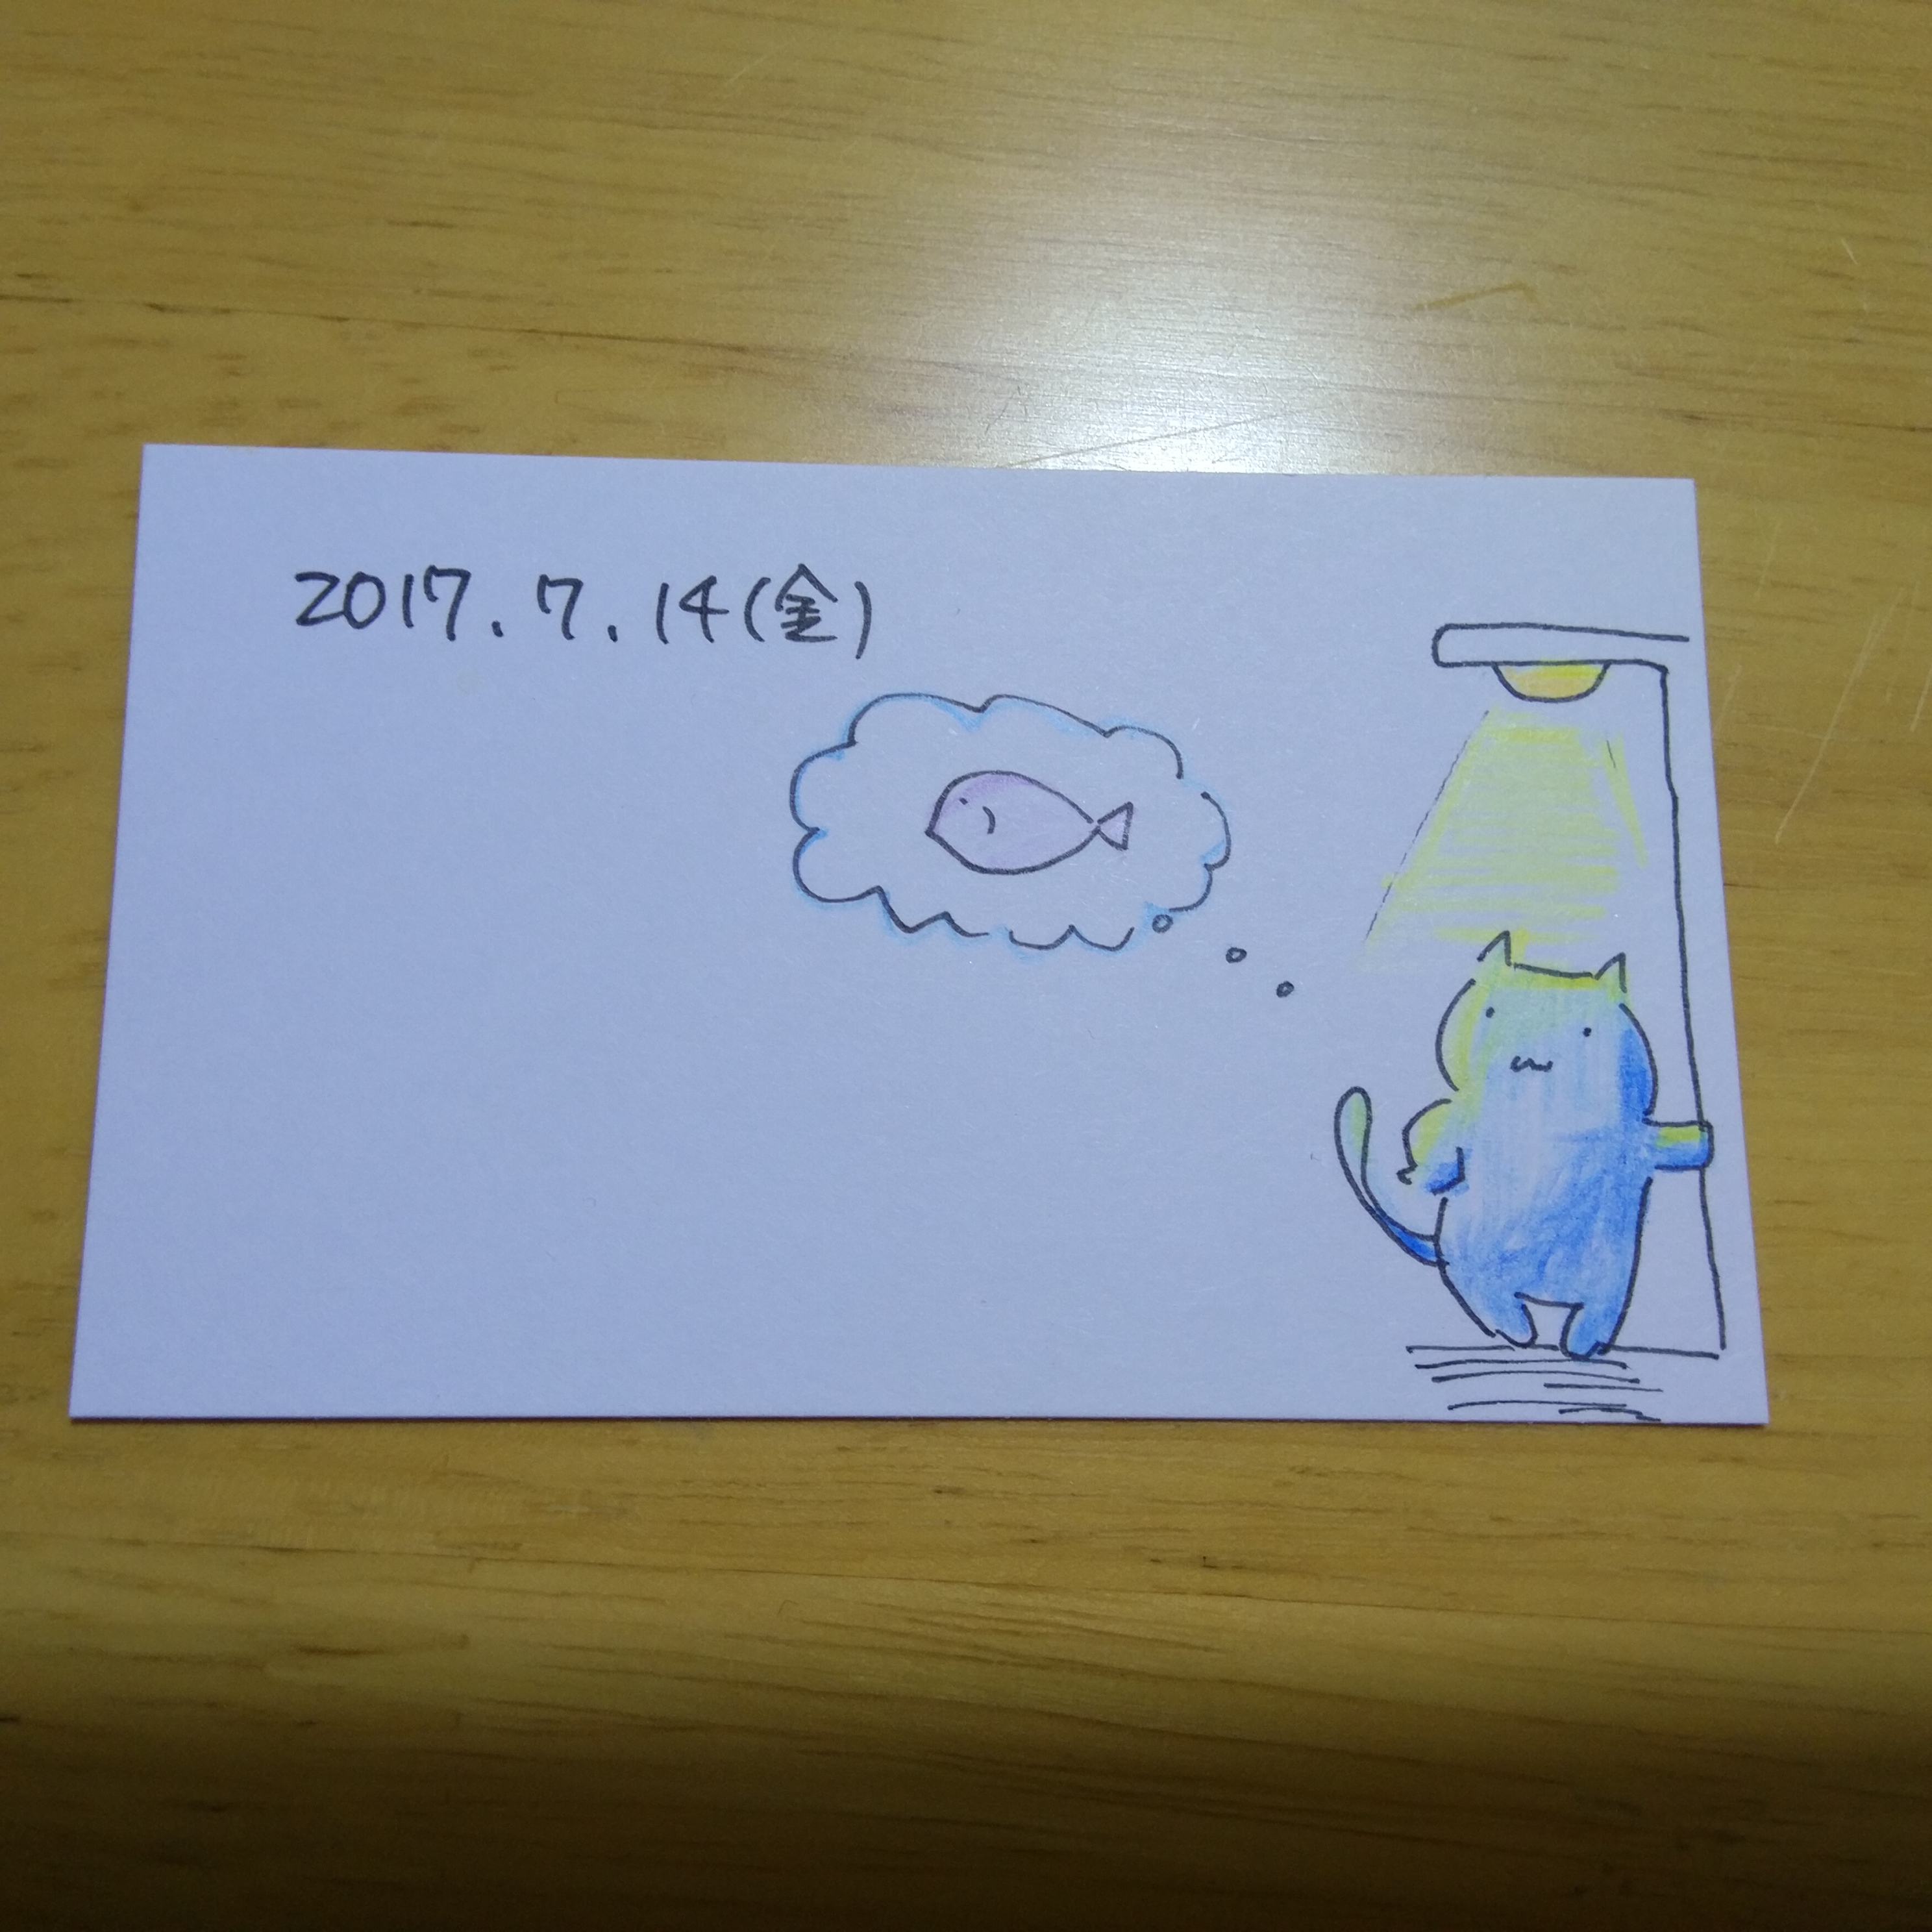 2017.7.14(金)